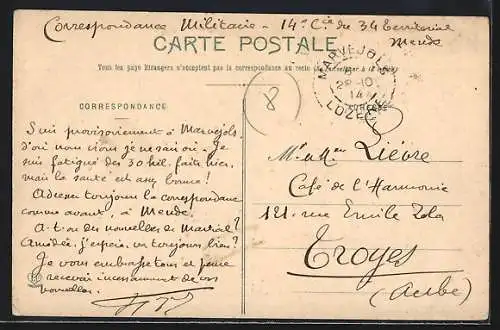 Correspondance Militaire - 14e Cie du 34 Territorial
Mende
CARTE POSTALE
Tous les pays Etrangers n'acceptent pas la correspondance au recto
MARVEJOLS
28-10
14
LOZERE
8
CORRESPONDANCE
ADRESSE
Suis provisoirement à Marvejols,
d'où nous irons je ne sais où. Je
suis fatigué des 30 kil. faits hier,
mais la santé est assez bonne!
Adressez toujours la correspondance
comme avant, à Mende.
A-t-on des nouvelles de Martial?
Amédée, j'espère, va toujours bien?
Je vous embrasse tous et pense
recevoir incessamment de vos
nouvelles.
Mr & Mme Lièvre
Café de l'Harmonie
121 rue Emile Zola
Troyes
(Aube)